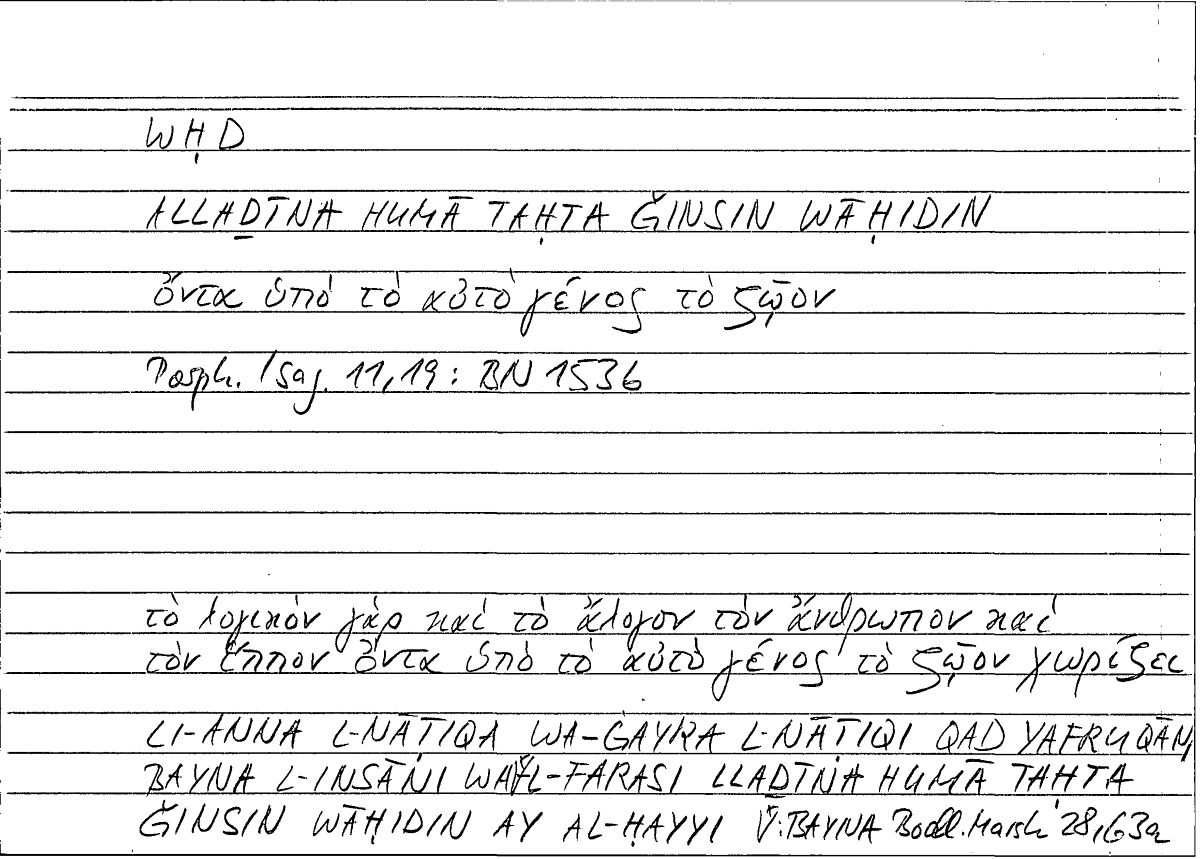 WḤD
ALLAḎĪNA HUMĀ TAḤTA ǦINSIN WĀḤIDIN
ὄντα ὑπὸ τὸ αὐτὸ γένος τὸ ζῷον
Porph. Isag. 11,19: BN 1536
τὸ λογικὸν γὰρ καὶ τὸ ἄλογον τὸν ἄνθρωπον καὶ
τὸν ἵππον ὄντα ὑπὸ τὸ αὐτὸ γένος τὸ ζῷον χωρίζει
LI-ANNA L-NĀṬIQA WA-ĠAYRA L-NĀṬIQI QAD YAFRUQĀNI
BAYNA L-INSĀNI WA L-FARASI LLAḎĪNA HUMĀ TAḤTA
ǦINSIN WĀḤIDIN AY AL-ḤAYYI V:BAYNA Bodl. Marsh 28,63a